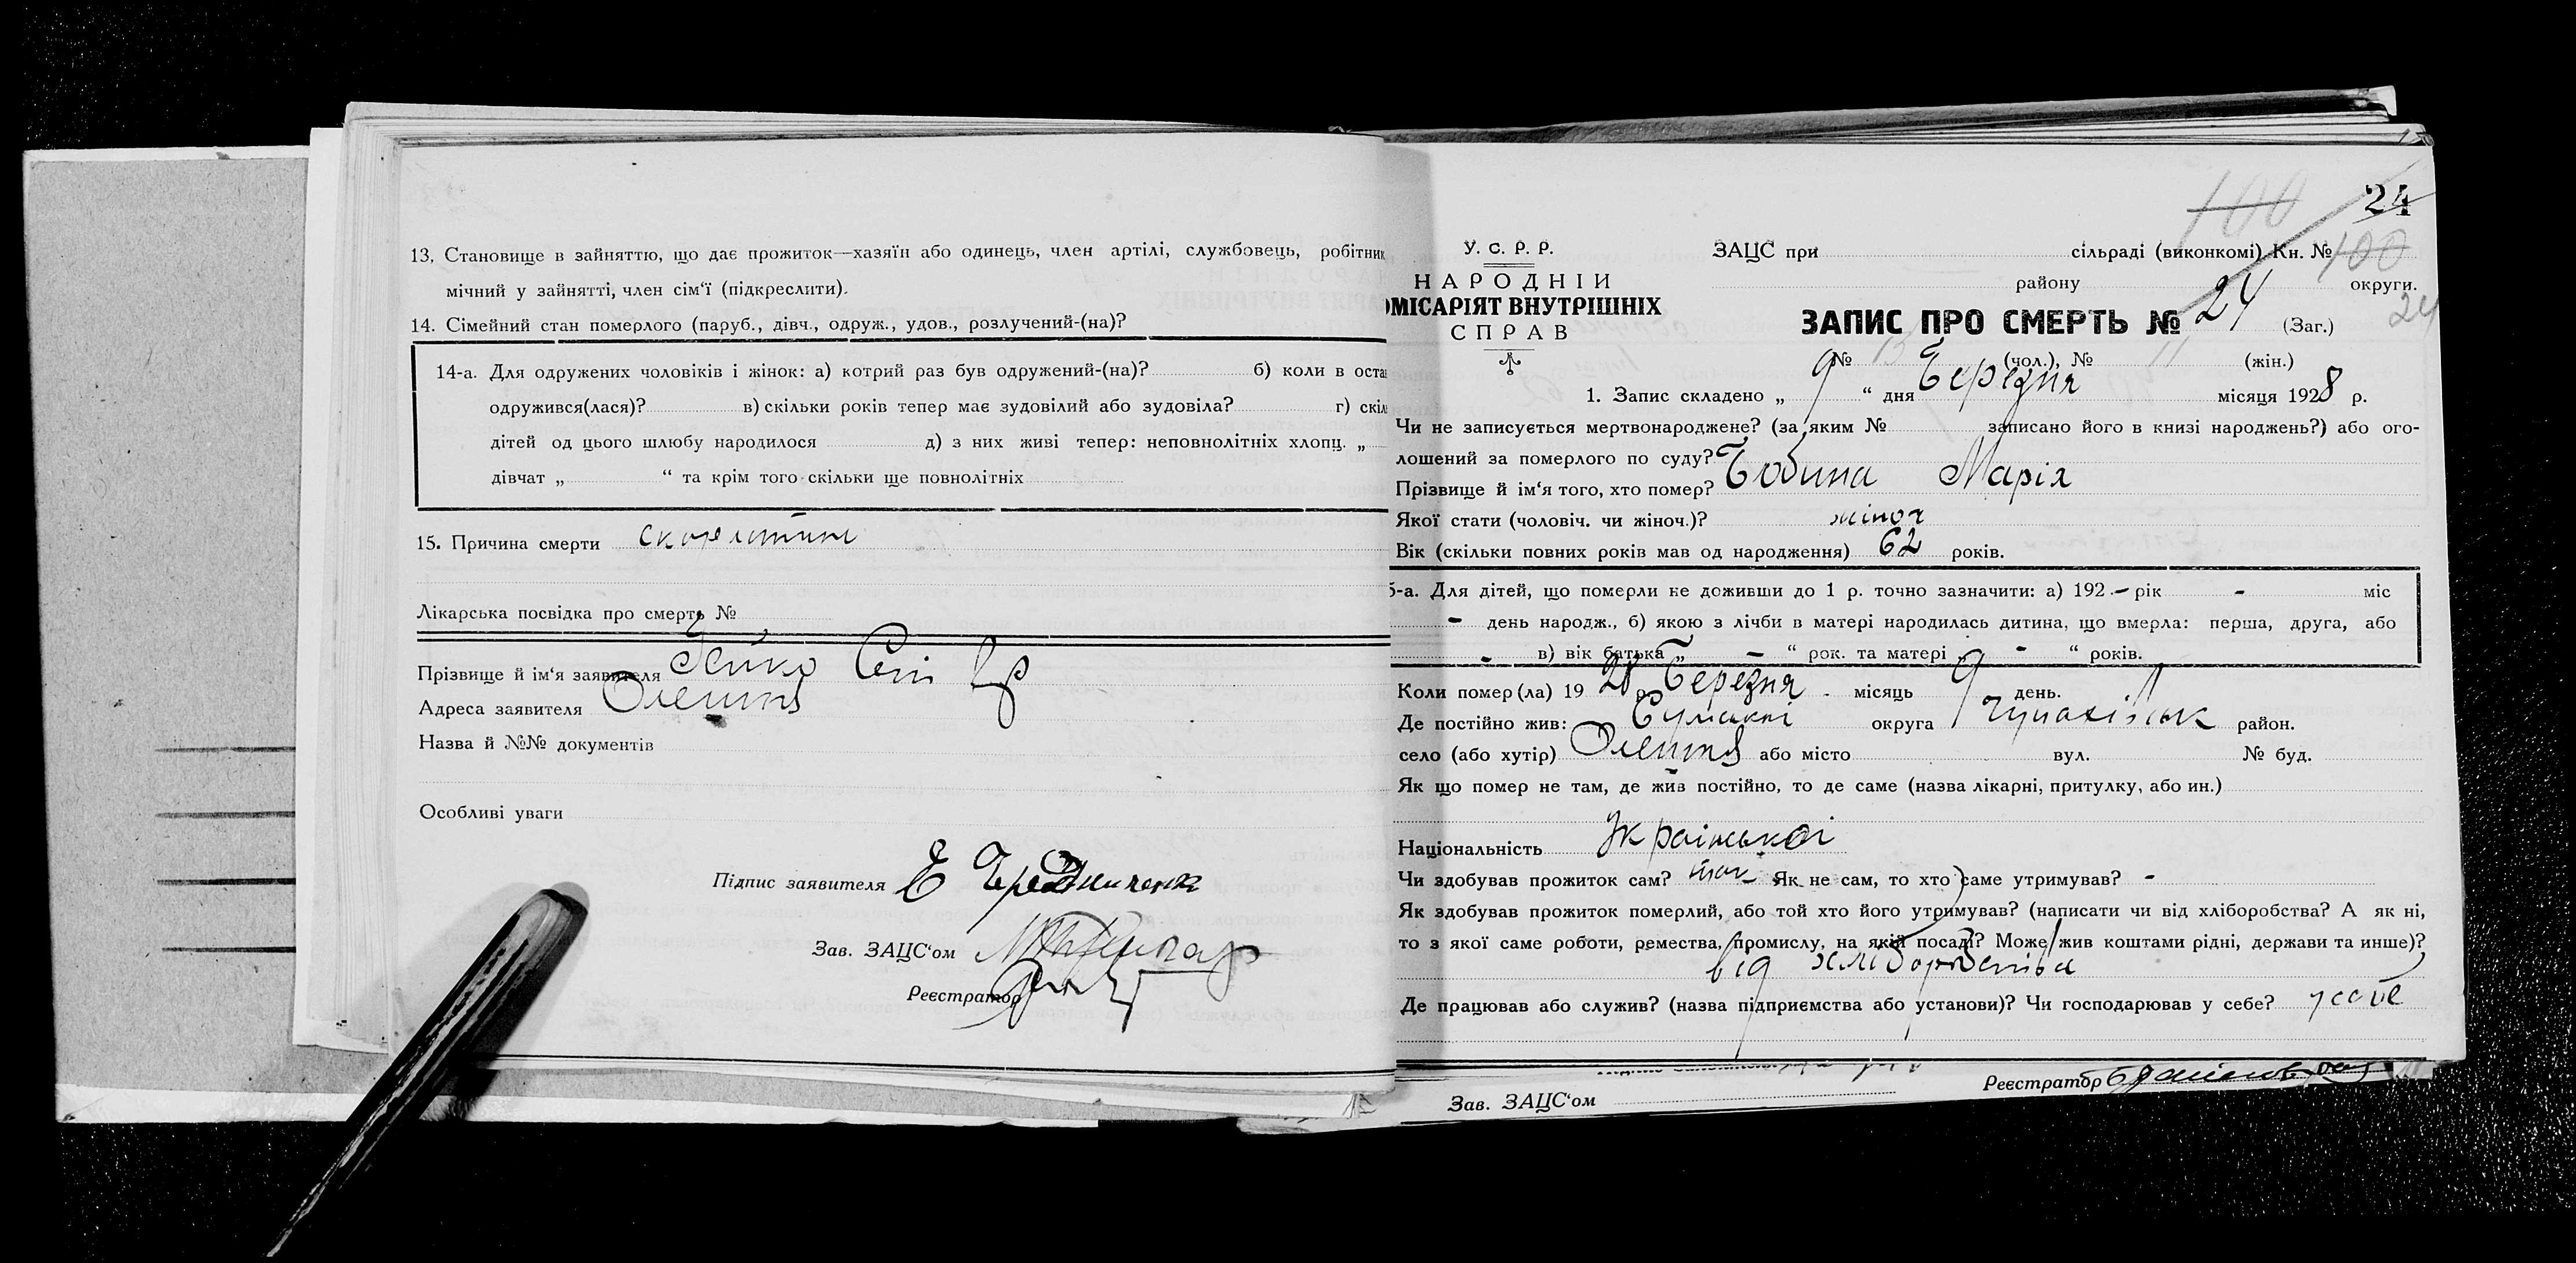 13. Становище в зайняттю, що дає прожиток—хазяїн або одинець, член артілі, службовець, робітник
мічний у зайнятті, член сім‘ї (підкреслити).
14. Сімейний стан померлого (паруб., дівч., одруж., удов., розлучений-(на)?
14-а. Для одружених чоловіків і жінок: а) котрий раз був одружений-(на)? б) коли в оста
одружився(лася)? в) скільки років тепер має зудовілий або зудовіла? г) скіль
дітей од цього шлюбу народилося д) з них живі тепер: неповнолітніх хлопц. „
дівчат „ “ та крім того скільки ще повнолітніх
15. Причина смерти
Лікарська посвідка про смерть №
Прізвище й ім‘я заявителя
Адреса заявителя
Назва й №№ документів
Особливі уваги
Підпис заявителя
Зав. ЗАЦС‘ом
Реєстратор
100 24
У. С. Р. Р.
НАРОДНІЙ
ОМІСАРІЯТ ВНУТРІШНІХ
СПРАВ
ЗАЦС при сільраді (виконкомі) Кн. № 100
району округи.
ЗАПИС ПРО СМЕРТЬ № 24 (Заг.) 24
№ 13 (чол.), № 11 (жін.)
1. Запис складено „ 9 “ дня Березня місяця 1928 р.
Чи не записується мертвонароджене? (за яким № записано його в книзі народжень?) або ого-
лошений за померлого по суду?
Прізвище й ім‘я того, хто помер? Бобина Марія
Якої стати (чоловіч. чи жіноч.)? жіноч
Вік (скільки повних років мав од народження) 62 років.
5-а. Для дітей, що померли не доживши до 1 р. точно зазначити: а) 192 - рік - міс
- день народж., б) якою з лічби в матері народилась дитина, що вмерла: перша, друга, або
- в) вік батька „ - “ рок. та матері „ - “ років.
Коли помер(ла) 19 28 р. Березня місяць 9 день.
Де постійно жив: округа район.
село (або хутір) або місто вул. № буд.
Як що помер не там, де жив постійно, то де саме (назва лікарні, притулку, або ин.)
Національність Української
Чи здобував прожиток сам? так Як не сам, то хто саме утримував? -
Як здобував прожиток померлий, або той хто його утримував? (написати чи від хліборобства? А як ні,
то з якої саме роботи, ремества, промислу, на якій посаді? Може жив коштами рідні, держави та инше)?
від хліборобства
Де працював або служив? (назва підприємства або установи)? Чи господарював у себе? у себе
Зав. ЗАЦС‘ом Реєстратор